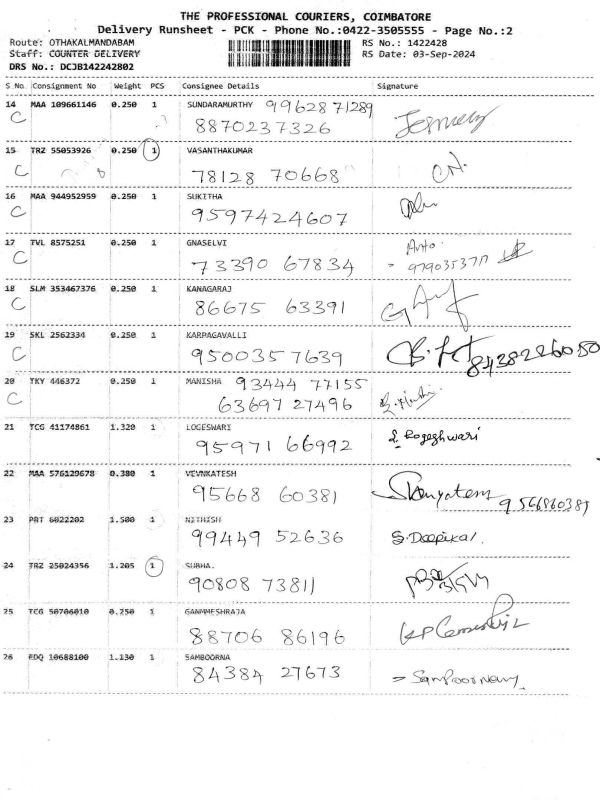 THE PROFESSIONAL COURIERS, COIMBATORE
Delivery Runsheet - PCK - Phone No.:0422-3505555 - Page No.:2
Route: OTHAKALMANDABAM
RS No.: 1422428
Staff: COUNTER DELIVERY
RS Date: 03-Sep-2024
DRS No.: DCJB142242802
S No. Consignment No Weight PCS Consignee Details Signature
14 MAA 109661146 0.250 1 SUNDARAMURTHY 99628 71289
C 8870237326
15 TRZ 55053926 0.250 1 VASANTHAKUMAR
C 78128 70668
16 MAA 944952959 0.250 1 SUKITHA
C 9597424607
17 TVL 8575251 0.250 1 GNASELVI Anto
C 73390 67834
18 SLM 353467376 0.250 1 KANAGARAJ
C 86675 63391
19 SKL 2562334 0.250 1 KARPAGAVALLI
C 9500357639 8438226080
20 TKY 446372 0.250 1 MANISHA 93444 77155
C 63697 27496
21 TCG 41174861 1.320 1 LOGESWARI
95971 66992
22 MAA 576129678 0.380 1 VEVNKATESH
95668 60381 9566860381
23 PRT 6022202 1.500 1 NITHISH
99449 52636 S. Deepika
24 TRZ 25024356 1.205 1 SUBHA.
90808 73811
25 TCG 50706010 0.250 1 GANMMESHRAJA
88706 86196
26 EDQ 10688100 1.130 1 SAMBOORNA
84384 27673